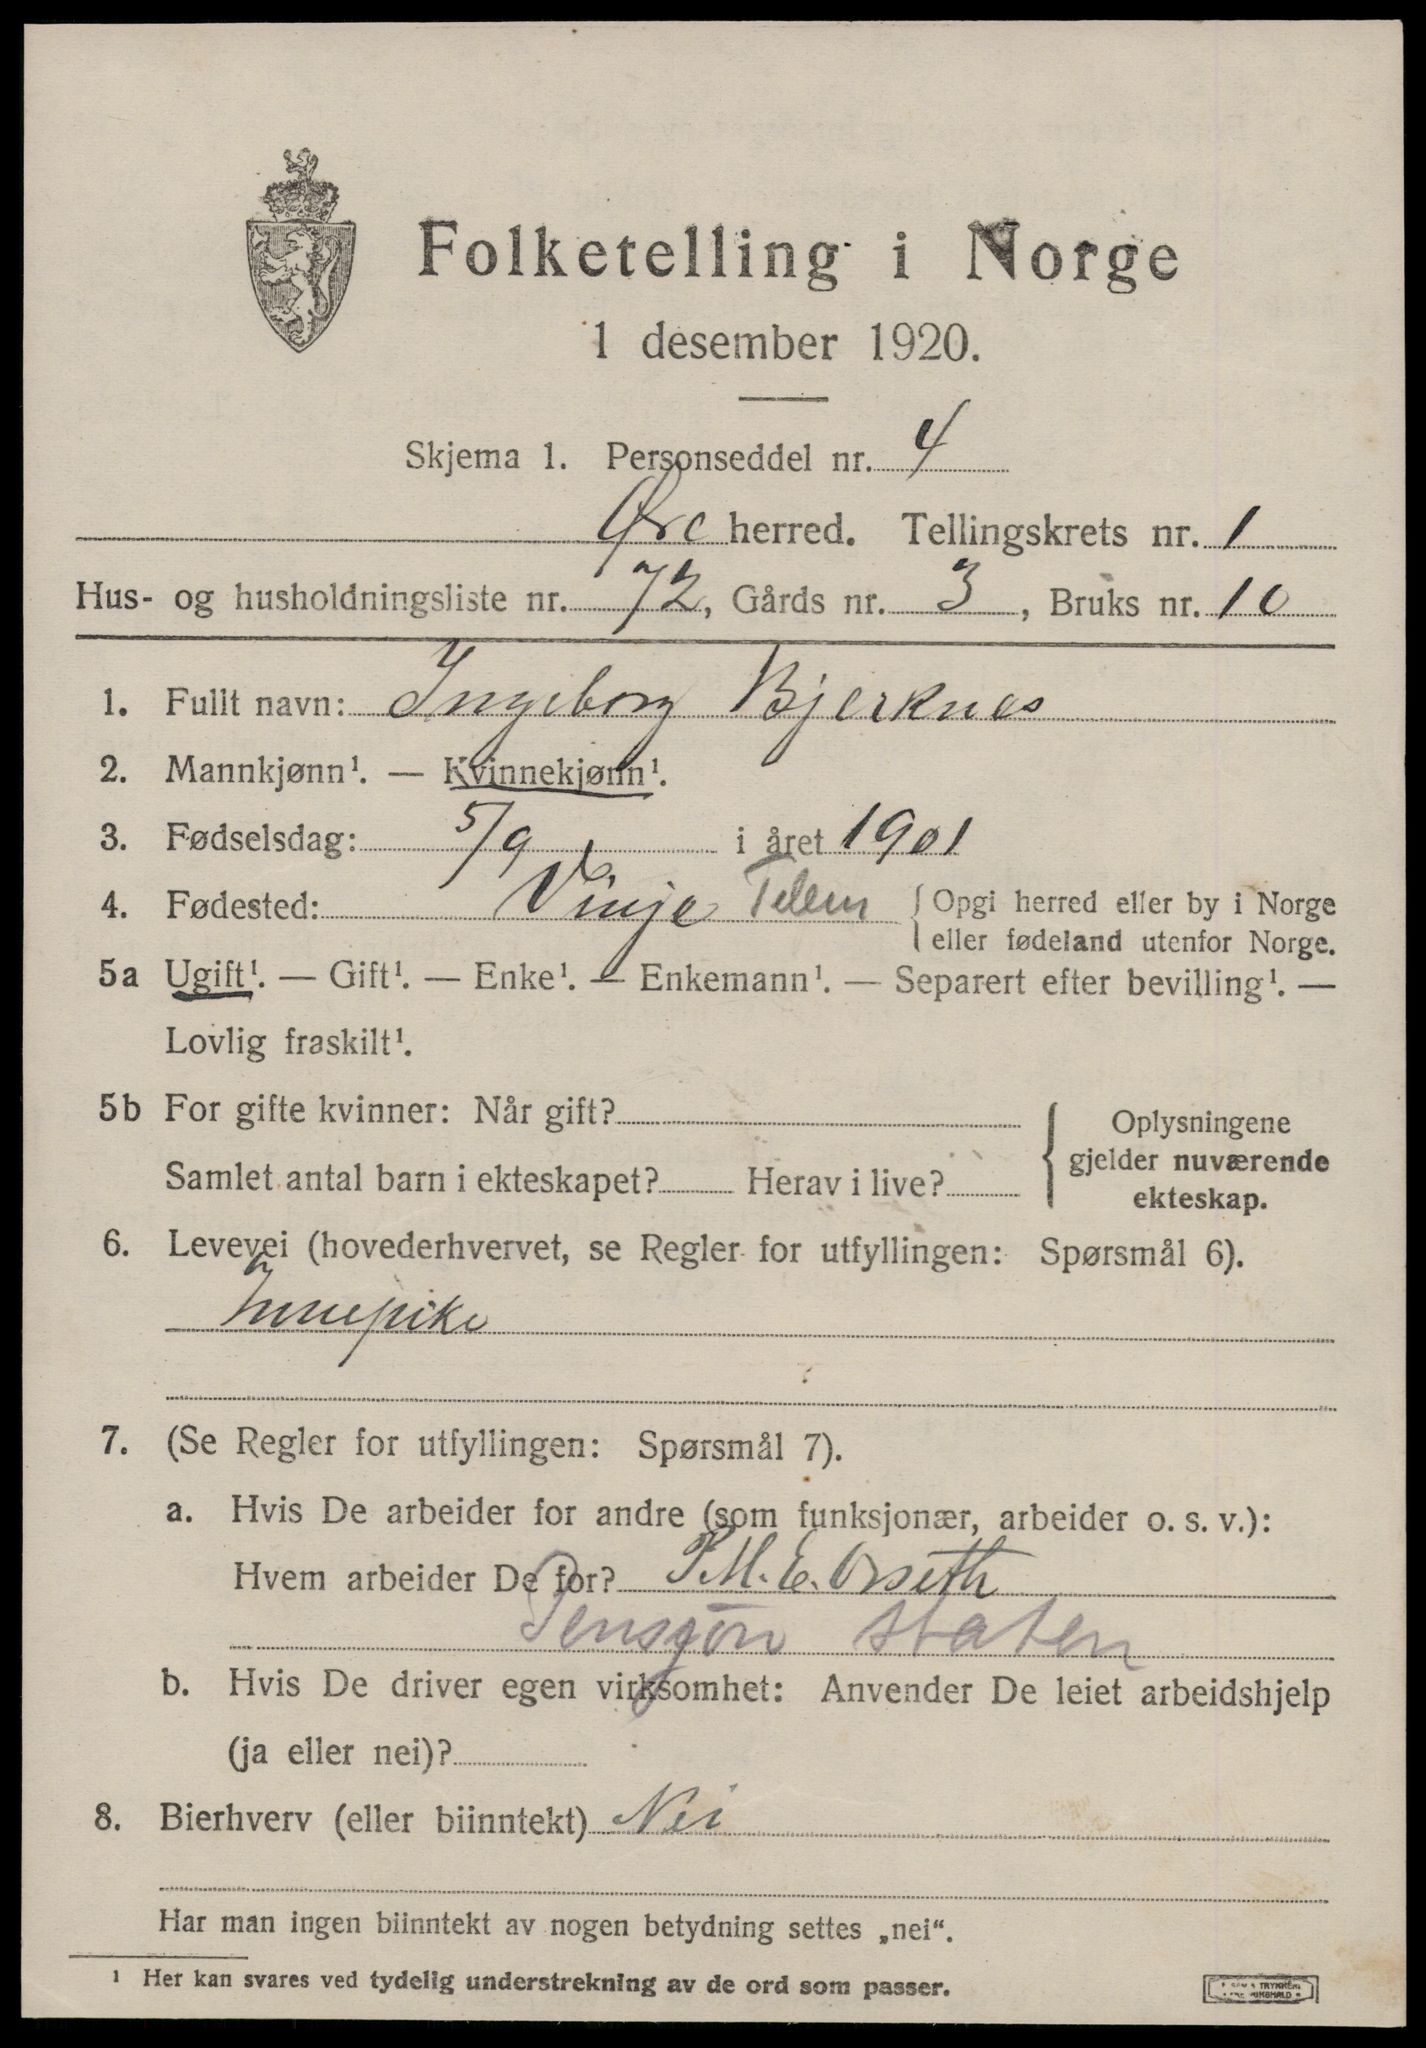 Folketelling i Norge
1 desember 1920.
Skjema 1. Personseddel nr. 4
Øre herred. Tellingskrets nr. 1
Hus- og husholdningsliste nr. 72, Gårds nr. 3, Bruks nr. 10
1. Fullt navn: Ingeborg Bjerknes
2. Mannkjønn¹. — Kvinnekjønn¹.
3. Fødselsdag: 5/9 i året 1901
4. Fødested: Vinje Telem { Opgi herred eller by i Norge
eller fødeland utenfor Norge.
5a Ugift¹. — Gift¹. — Enke¹. — Enkemann¹. — Separert efter bevilling¹. —
Lovlig fraskilt¹.
5b For gifte kvinner: Når gift? { Oplysningene
gjelder nuværende
Samlet antal barn i ekteskapet? Herav i live?
ekteskap.
6. Levevei (hovederhvervet, se Regler for utfyllingen: Spørsmål 6).
Innepike
7. (Se Regler for utfyllingen: Spørsmål 7).
a. Hvis De arbeider for andre (som funksjonær, arbeider o. s. v.):
Hvem arbeider De for? P.M.E. Orseth
Pensjon staten
b. Hvis De driver egen virksomhet: Anvender De leiet arbeidshjelp
(ja eller nei)?
8. Bierhverv (eller biinntekt) Nei
Har man ingen biinntekt av nogen betydning settes „nei“.
¹ Her kan svares ved tydelig understrekning av de ord som passer.